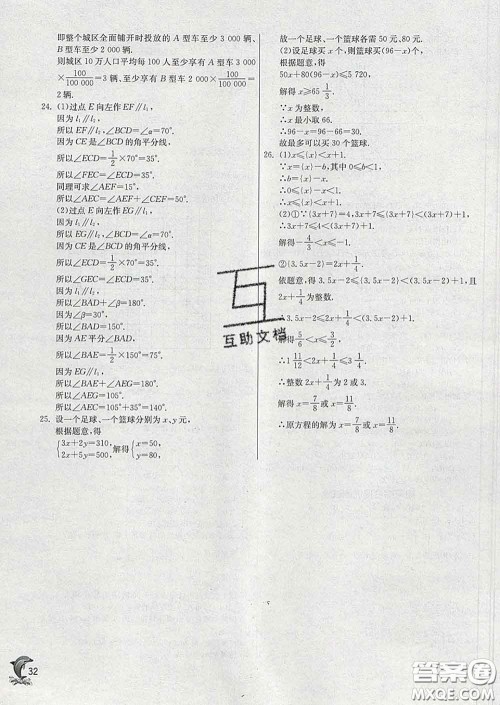 即整个城区全面铺开时投放的 A 型车至少 3 000 辆、
B 型车至少 2 000 辆.
则城区 10 万人口平均每 100 人至少享有 A 型车 3 000
× 100/100 000 = 3 辆、至少享有 B 型车 2 000 × 100/100 000 =
2 辆.
24. (1)过点 E 向左作 EF∥l₁,
因为 l₁∥l₂,
所以 EF∥l₂,∠BCD=∠α=70°.
因为 CE 是∠BCD 的角平分线,
所以∠ECD=1/2×70°=35°.
所以∠FEC=∠ECD=35°.
同理可求∠AEF=15°.
所以∠AEC=∠AEF+∠CEF=50°.
(2)过点 E 向左作 EG∥l₁.
因为 l₁∥l₂,
所以 EG∥l₂,∠BCD=∠α=70°.
因为 CE 是∠BCD 的角平分线,
所以∠ECD=1/2×70°=35°.
所以∠GEC=∠ECD=35°.
因为 l₁∥l₂,
所以∠BAD+∠β=180°.
因为∠β=30°,
所以∠BAD=150°.
因为 AE 平分∠BAD,
所以∠BAE=1/2×150°=75°.
因为 EG∥l₁,
所以∠BAE+∠AEG=180°.
所以∠AEG=105°.
所以∠AEC=105°+35°=140°.
25. 设一个足球、一个篮球分别为 x,y 元,
根据题意,得
{3x+2y=310, 2x+5y=500, 解得{x=50, y=80.
故一个足球、一个篮球各需 50 元、80 元.
(2)设足球买 x 个,则篮球买(96-x)个.
根据题意,得
50x+80(96-x)≤5 720,
解得 x≥65 1/3.
∵x 为整数,
∴x 最小取 66.
∴96-x=96-66=30.
故最多可以买 30 个篮球.
26. (1)x≤⟨x⟩<x+1.
∵x=⟨x⟩-b,其中 0≤b<1.
∴b=⟨x⟩-x.
∴0≤⟨x⟩-x<1.
∴x≤⟨x⟩<x+1.
(2)①∵⟨3x+7⟩=4,3x+7≤⟨3x+7⟩<(3x+7)+1.
∴3x+7≤4<(3x+7)+1.
解得-4/3<x≤-1.
②⟨3.5x-2⟩=2x+1/4.
依题意,得 3.5x-2≤⟨3.5x-2⟩<(3.5x-2)+1,且
2x+1/4 为整数.
∴3.5x-2≤2x+1/4<(3.5x-2)+1.
解得 5/6<x≤3/2.
∴1 11/12<2x+1/4≤3 1/4.
∴整数 2x+1/4 为 2 或 3.
解得 x=7/8 或 x=11/8.
∴原方程的解为 x=7/8 或 x=11/8.
互助文档
32
答案圈
MXQE.COM